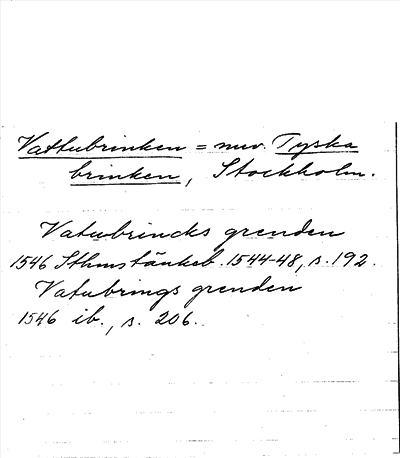 Vattubrinken = nuv. Tyska
brinken, Stockholm.
Vatubrincks grenden
1546 Sthms tänkeb. 1544-48, s. 192.
Vatubrings grenden
1546 ib., s. 206.